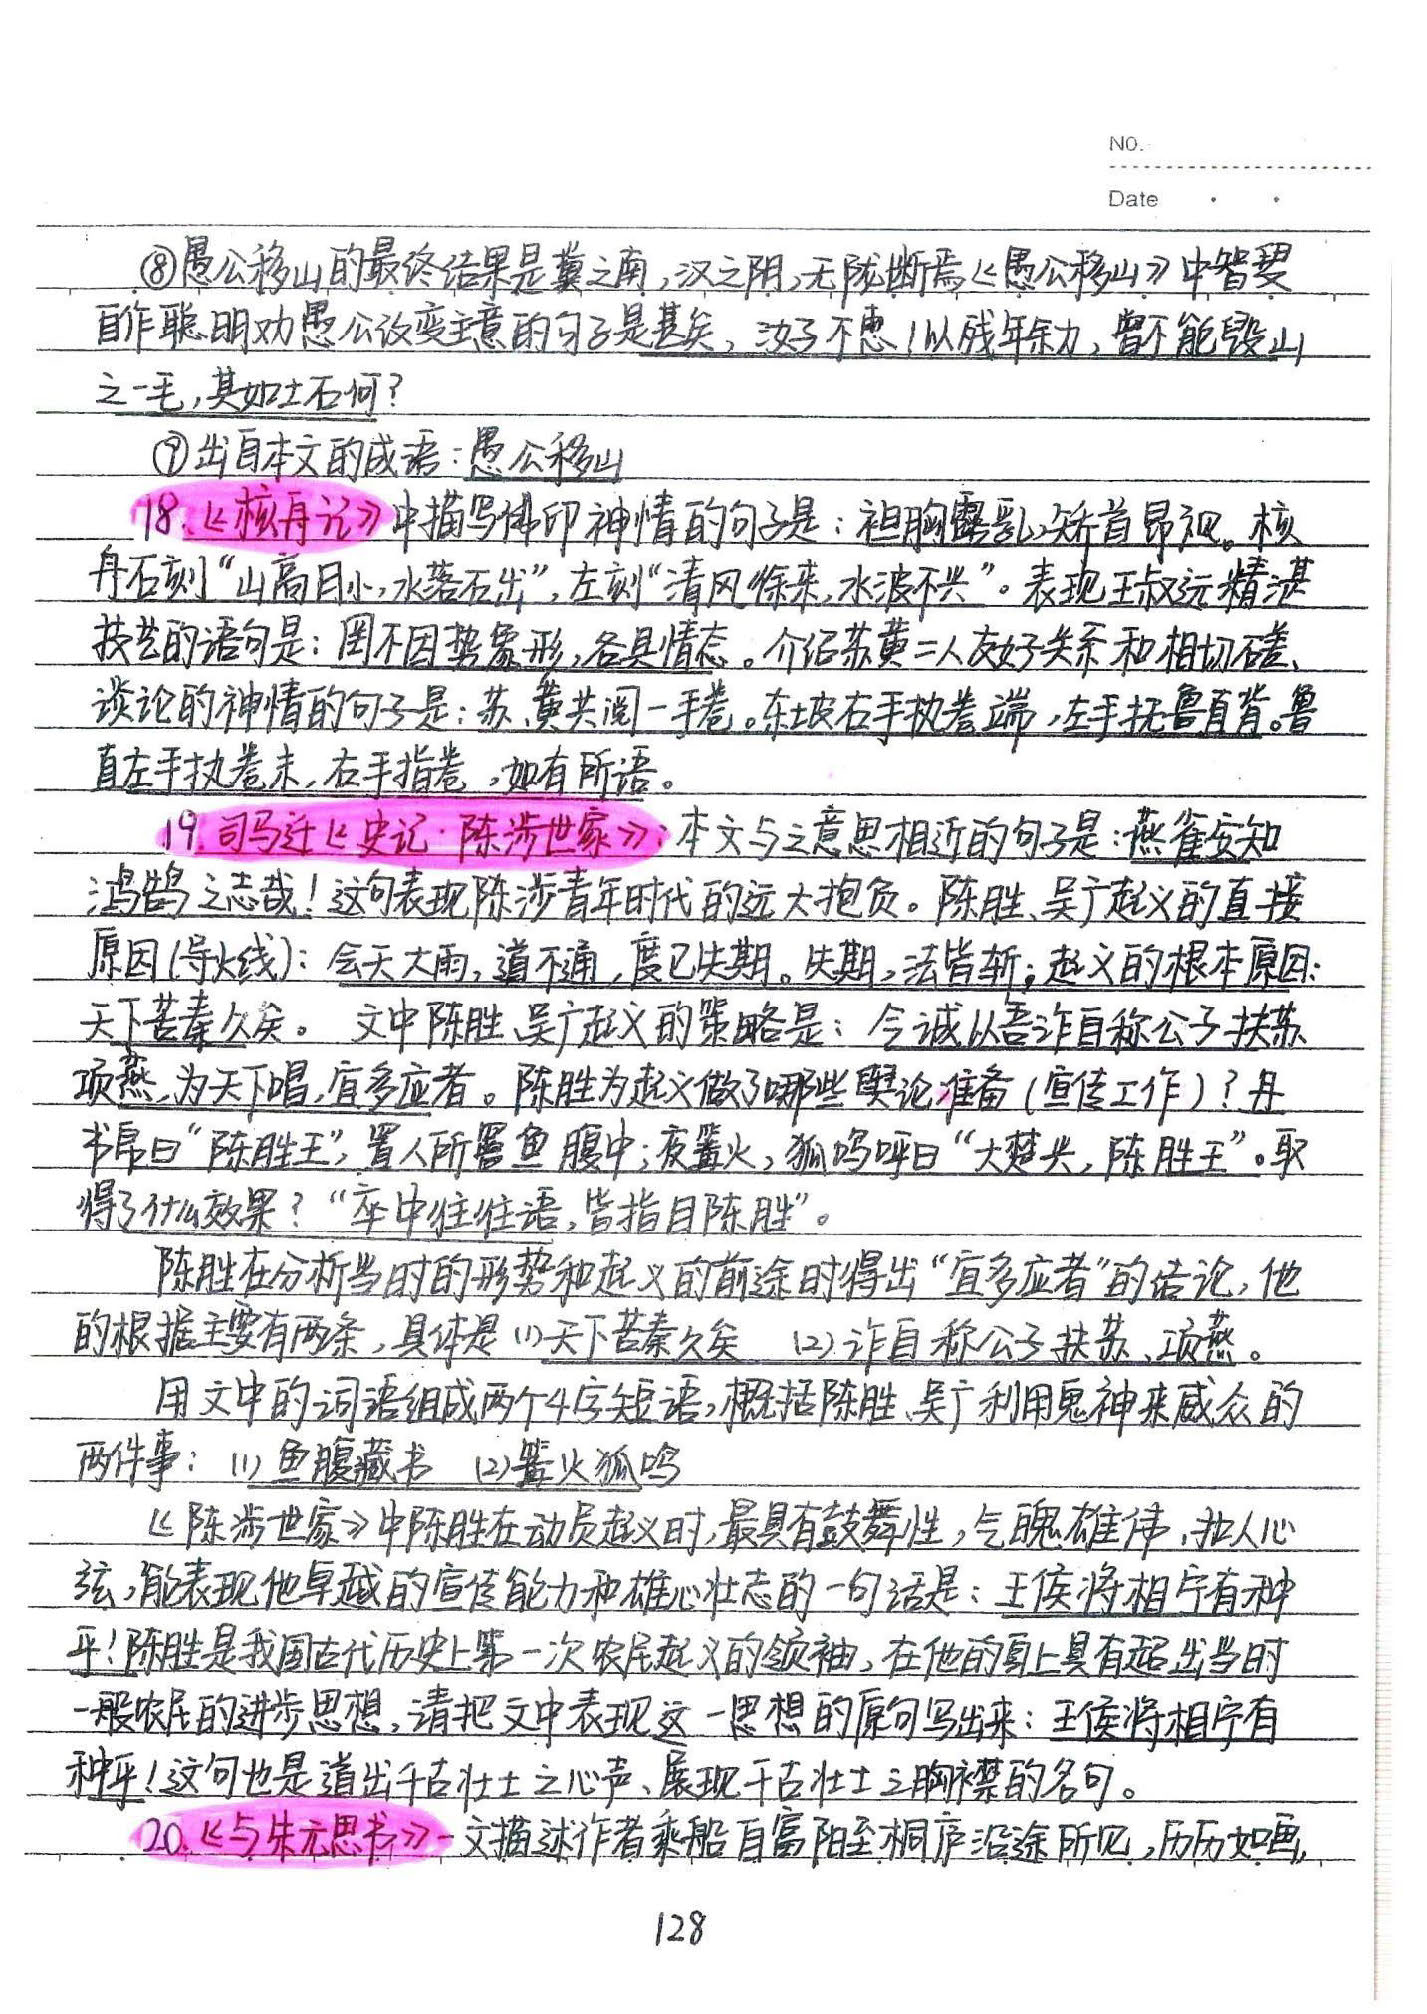 NO.
Date
⑧愚公移山的最终结果是冀之南,汉之阴,无陇断焉《愚公移山》中智叟
自作聪明劝愚公改变主意的句子是甚矣,汝之不惠!以残年余力,曾不能毁山
之一毛,其如土石何?
⑨出自本文的成语:愚公移山
18.《核舟记》中描写佛印神情的句子是:袒胸露乳,矫首昂视。核
舟石刻“山高月小,水落石出”,左刻“清风徐来,水波不兴”。表现王叔远精湛
技艺的语句是:罔不因势象形,各具情态。介绍苏黄二人友好关系和相切磋、
谈论的神情的句子是:苏、黄共阅一手卷。东坡右手执卷端,左手抚鲁直背。鲁
直左手执卷末,右手指卷,如有所语。
19.司马迁《史记·陈涉世家》:本文与之意思相近的句子是:燕雀安知
鸿鹄之志哉!这句表现陈涉青年时代的远大抱负。陈胜、吴广起义的直接
原因(导火线):会天大雨,道不通,度已失期。失期,法皆斩;起义的根本原因:
天下苦秦久矣。 文中陈胜、吴广起义的策略是:今诚以吾诈自称公子扶苏
项燕,为天下唱,宜多应者。陈胜为起义做了哪些舆论准备(宣传工作)?丹
书帛曰“陈胜王”,置人所罾鱼腹中;夜篝火,狐鸣呼曰“大楚兴,陈胜王”。取
得了什么效果?“卒中往往语,皆指目陈胜”。
陈胜在分析当时的形势和起义的前途时得出“宜多应者”的结论,他
的根据主要有两条,具体是(1)天下苦秦久矣 (2)诈自称公子扶苏、项燕。
用文中的词语组成两个4字短语,概括陈胜、吴广利用鬼神来威众的
两件事:(1)鱼腹藏书 (2)篝火狐鸣
《陈涉世家》中陈胜在动员起义时,最具有鼓舞性,气魄雄伟,扣人心
弦,能表现他卓越的宣传能力和雄心壮志的一句话是:王侯将相宁有种
乎!陈胜是我国古代历史上第一次农民起义的领袖,在他的身上具有超出当时
一般农民的进步思想,请把文中表现这一思想的原句写出来:王侯将相宁有
种乎!这句也是道出千古壮士之心声、展现千古壮士之胸襟的名句。
20.《与朱元思书》一文描述作者乘船自富阳至桐庐沿途所见,历历如画,
128